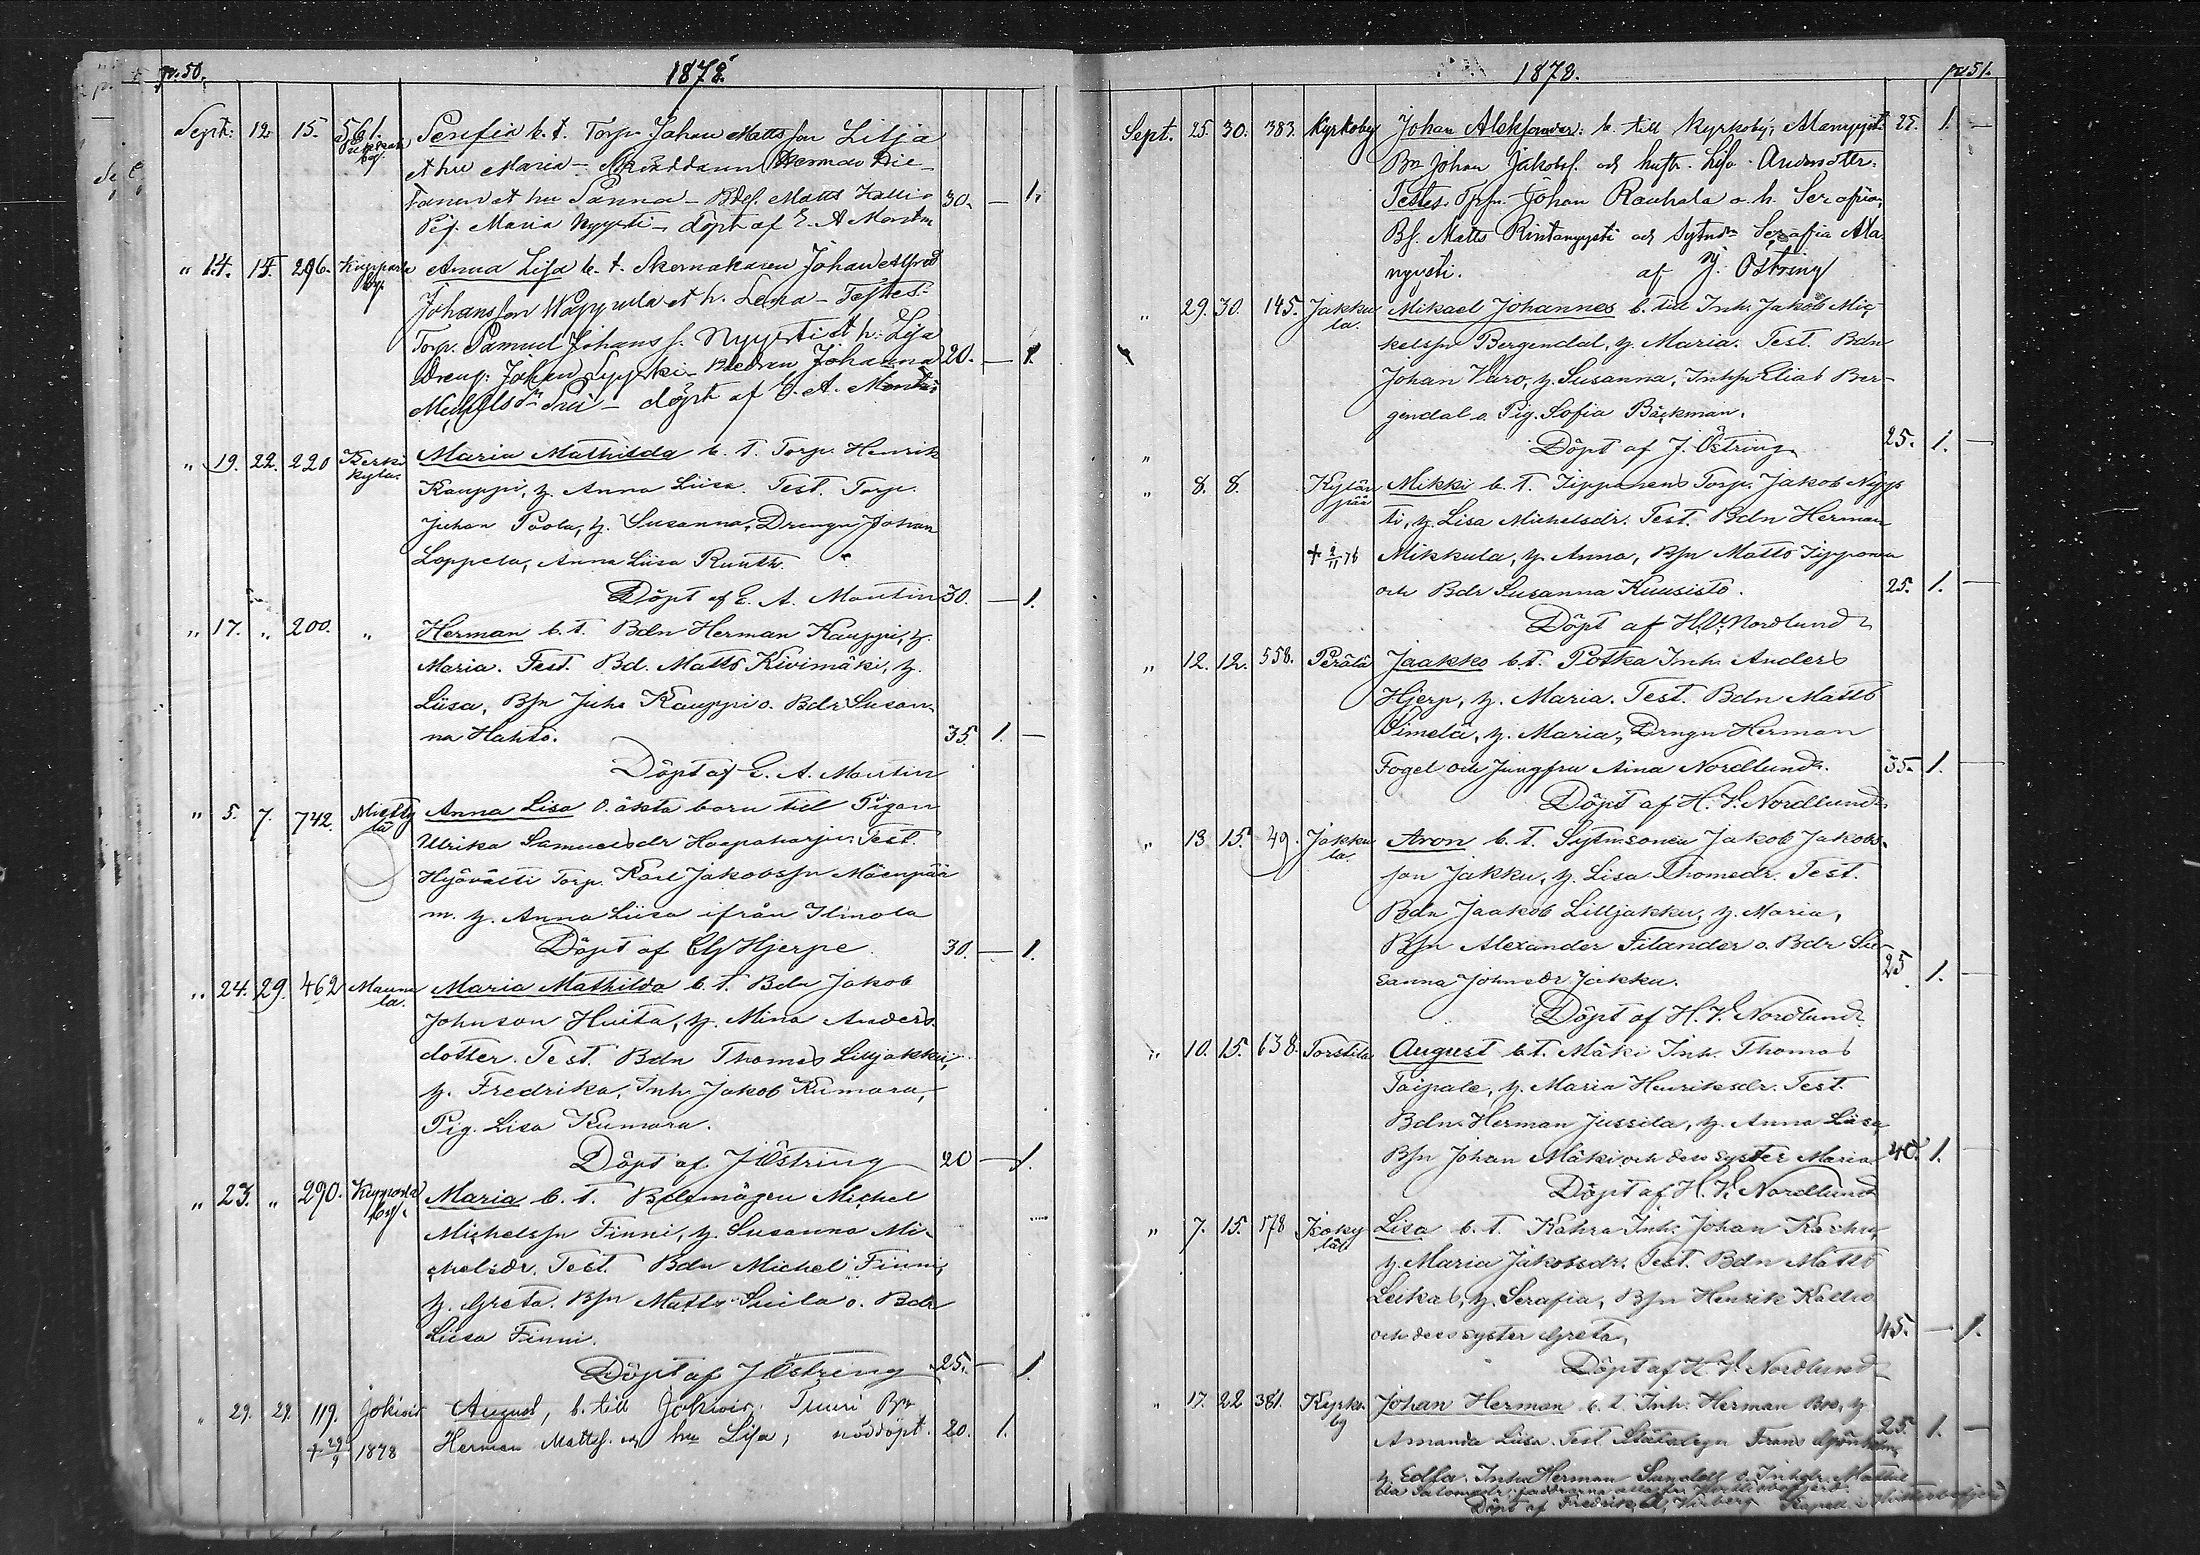 p. 50.
1878.
Sept. 12. 15. 561. Serafia b. t. Torp. Johan Mattsson Lilja
et hu Maria - Skräddaren Herman
et hu Sanna - Bdes. Matts Kallio 30. - 1.
Pig. Maria Nyysti - döpt af E. A. Montin
" 14. 15. 296. Kuppar- Anna Lisa b. t. Skomakaren Johan Alfred
by. Johansson et h. Lena - Testes:
Torp. Samuel Johans s. Nyysti et h. Lisa
Dreng. Johan - Johanna 20. - 1.
döpt af E. A. Montin
" 19. 22. 220 Kerki- Maria Mathilda b. t. Torp. Henrik
kylä. Kauppi, h. Anna Liisa. Test. Torp.
Juhan Poola, h. Susanna, Drengn Johan
Loppela, Anna Liisa Ruuth.
Döpt af E. A. Montin 30. - 1.
" 17. " 200. " Herman b. t. Bdn Herman Kauppi, h.
Maria. Test. Bd. Matts Kivimäki, h.
Liisa, Bsn Juho Kauppi o. Bdr Susan-
na Hahto. 35. 1. -
Döpt af E. A. Montin
" 5. 7. 742. Anna Lisa o. äkta barn till Pigan
Ulrika Samuelsdr Haapaharju. Test.
Hyövälti Torp. Karl Jakobssn Mäenpää
m. h. Anna Liisa ifrån Ilmola
Döpt af Hjerpe. 30. - 1.
" 24. 29. 462 Mauna- Maria Mathilda b. t. Bdn Jakob
la. Johnson Huita, h. Mina Anders-
dotter. Test. Bdn Thomas Lilljakku,
h. Fredrika, Inh. Jakob Kumara,
Pig. Lisa Kumara.
Döpt af J Östring 20 - 1.
" 23. " 290. Kuppar- Maria b. t. Bdsmågen Michel
by. Michelssn Finni, h. Susanna Mi-
chelsdr. Test. Bdn Michel Finni,
h. Greta. Bsn Matts o. Bdr
Liisa Finni.
Döpt af J Östring 25. - 1.
" 29. 29. 119. Jokivis August, b. till Jokivis, Tuuri Bn
+ 29/9 1878 Herman Mattss. och hu Lisa, nöddöpt. 20. 1.
1878.
p. 51.
Sept. 25. 30. 383. Kyrkoby Johan Aleksander b. till Kyrkoby, Alanyyst. 25. 1. -
Bn Johan Jakobs. och hustr. Lisa Andersdtter.
Testes. Johan Rauhala o. h. Serafia,
Bs. Matts Rintanyysti och Sytndr Serafia Ala-
nyysti. af J. Östring
" 29. 30. 145. Jakku- Mikael Johannes b. till Inh. Jakob Mic-
la. kelssn Bergendal, h. Maria. Test. Bdn
Johan Varo, h. Susanna, Inhsn Elias Ber-
gendal o. Pig. Sofia Bäckman.
" Döpt af J. Östring 25. 1. -
" 8. 8. Kylän- Mikki b. t. Tipponens Torp. Jakob Nyys-
pää ti, h. Lisa Michelsdr. Test. Bdn Herman
Mikkula, h. Anna, Bsn Matts Tipponen
och Bdr Susanna Kuusisto. 25. 1. -
Döpt af H. V. Nordlund
" 12. 12. 558. Perälä Jaakko b. t. Potka Inh. Anders
Hjerp, h. Maria. Test. Bdn Matts
Simelä, h. Maria, Drngn Herman
Fogel och Jungfru Aina Nordlund. 35. 1. -
Döpt af H. V. Nordlund
" 13 15. 49. Jakku- Aron b. t. Sytn.sonen Jakob Jakobs-
la. son Jakku, h. Lisa Thomedr. Test.
Bdn Jaakob Lilljakku, h. Maria,
Bsn Alexander Filander o. Bdr Su-
sanna Johnsdr Jakku. 25. 1. -
Döpt af H. V. Nordlund
" 10. 15. 638. Torstila August b. t. Mäki Inh. Thomas
Taipale, h. Maria Henriksdr. Test.
Bdn Herman Jussila, h. Anna Liisa,
Bsn Johan Mäki och dess syster Maria 40. 1. -
Döpt af H. V. Nordlund
" 7. 15. 178 Lisa b. t. Kahra Inh. Johan Kahra,
h. Maria Jakobsdr. Test. Bdn Matts
h. Serafia, Bsn Henrik Kallio
och dess syster Greta. 45. - 1.
Döpt af H. V. Nordlund
" 17. 22 381. Kyrko- Johan Herman b. t. Inh. Herman h.
by Amanda Liisa. Test. Frans 25. 1. -
h. Edla. Inhn Herman Sundell o. Inhdr
Döpt af Fredrik